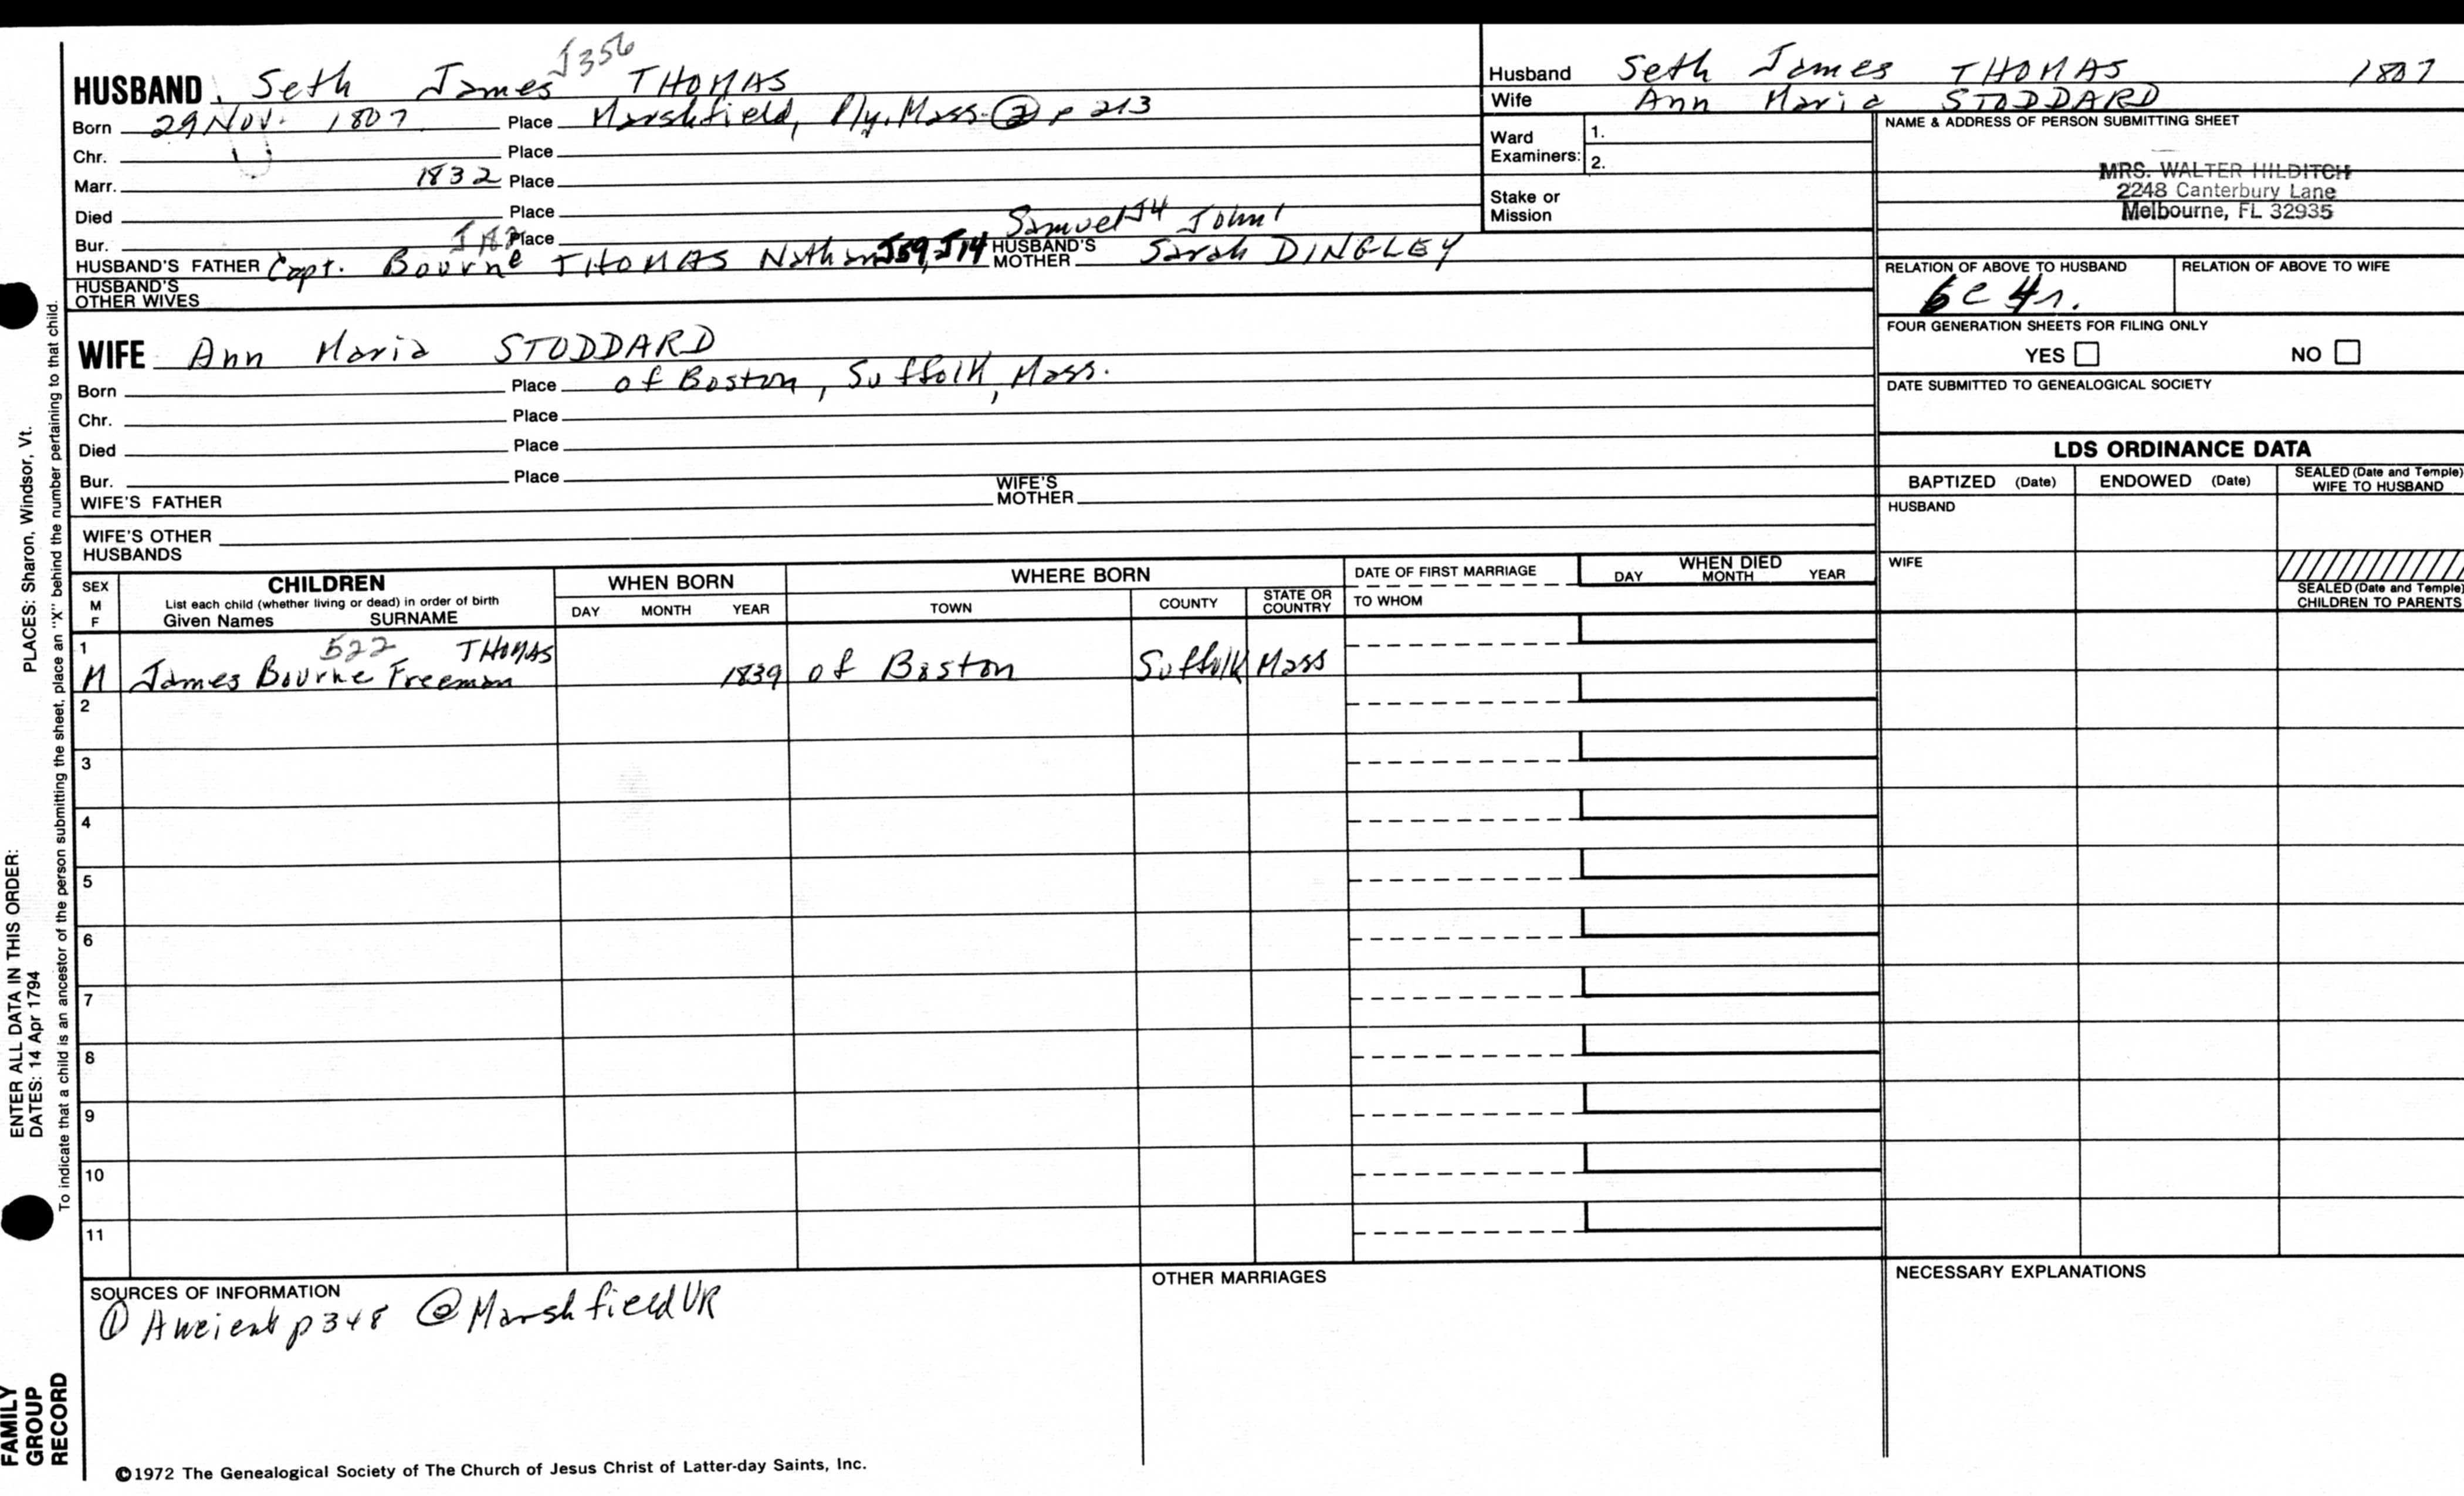 J356
HUSBAND Seth James THOMAS
Born 29 Nov. 1807 Place Marshfield, Ply. Mass. ② p 213
Chr. Place
Marr. 1832 Place
Died Place
Bur. Place Samuel J4 John1
HUSBAND'S FATHER Capt. Bourne THOMAS Nathan J59, J14 HUSBAND'S MOTHER Sarah DINGLEY
HUSBAND'S OTHER WIVES
WIFE Ann Maria STODDARD
Born Place of Boston, Suffolk, Mass.
Chr. Place
Died Place
Bur. Place
WIFE'S FATHER WIFE'S MOTHER
WIFE'S OTHER HUSBANDS
Husband Seth James THOMAS 1807
Wife Ann Maria STODDARD
Ward Examiners: 1.
2.
Stake or Mission
NAME & ADDRESS OF PERSON SUBMITTING SHEET
MRS. WALTER HILDITCH
2248 Canterbury Lane
Melbourne, FL 32935
RELATION OF ABOVE TO HUSBAND RELATION OF ABOVE TO WIFE
6c 4r.
FOUR GENERATION SHEETS FOR FILING ONLY
YES NO
DATE SUBMITTED TO GENEALOGICAL SOCIETY
LDS ORDINANCE DATA
BAPTIZED (Date) ENDOWED (Date) SEALED (Date and Temple) WIFE TO HUSBAND
HUSBAND
WIFE
SEALED (Date and Temple) CHILDREN TO PARENTS
SEX M F
CHILDREN
List each child (whether living or dead) in order of birth
Given Names SURNAME
WHEN BORN
DAY MONTH YEAR
WHERE BORN
TOWN COUNTY STATE OR COUNTRY
DATE OF FIRST MARRIAGE
TO WHOM
WHEN DIED
DAY MONTH YEAR
1 522 THOMAS
M James Bourne Freeman 1839 of Boston Suffolk Mass
2
3
4
5
6
7
8
9
10
11
SOURCES OF INFORMATION
① Ancient p348 ② Marshfield VR
OTHER MARRIAGES
NECESSARY EXPLANATIONS
©1972 The Genealogical Society of The Church of Jesus Christ of Latter-day Saints, Inc.
FAMILY GROUP RECORD
ENTER ALL DATA IN THIS ORDER:
DATES: 14 Apr 1794
PLACES: Sharon, Windsor, Vt.
To indicate that a child is an ancestor of the person submitting the sheet, place an "X" behind the number pertaining to that child.